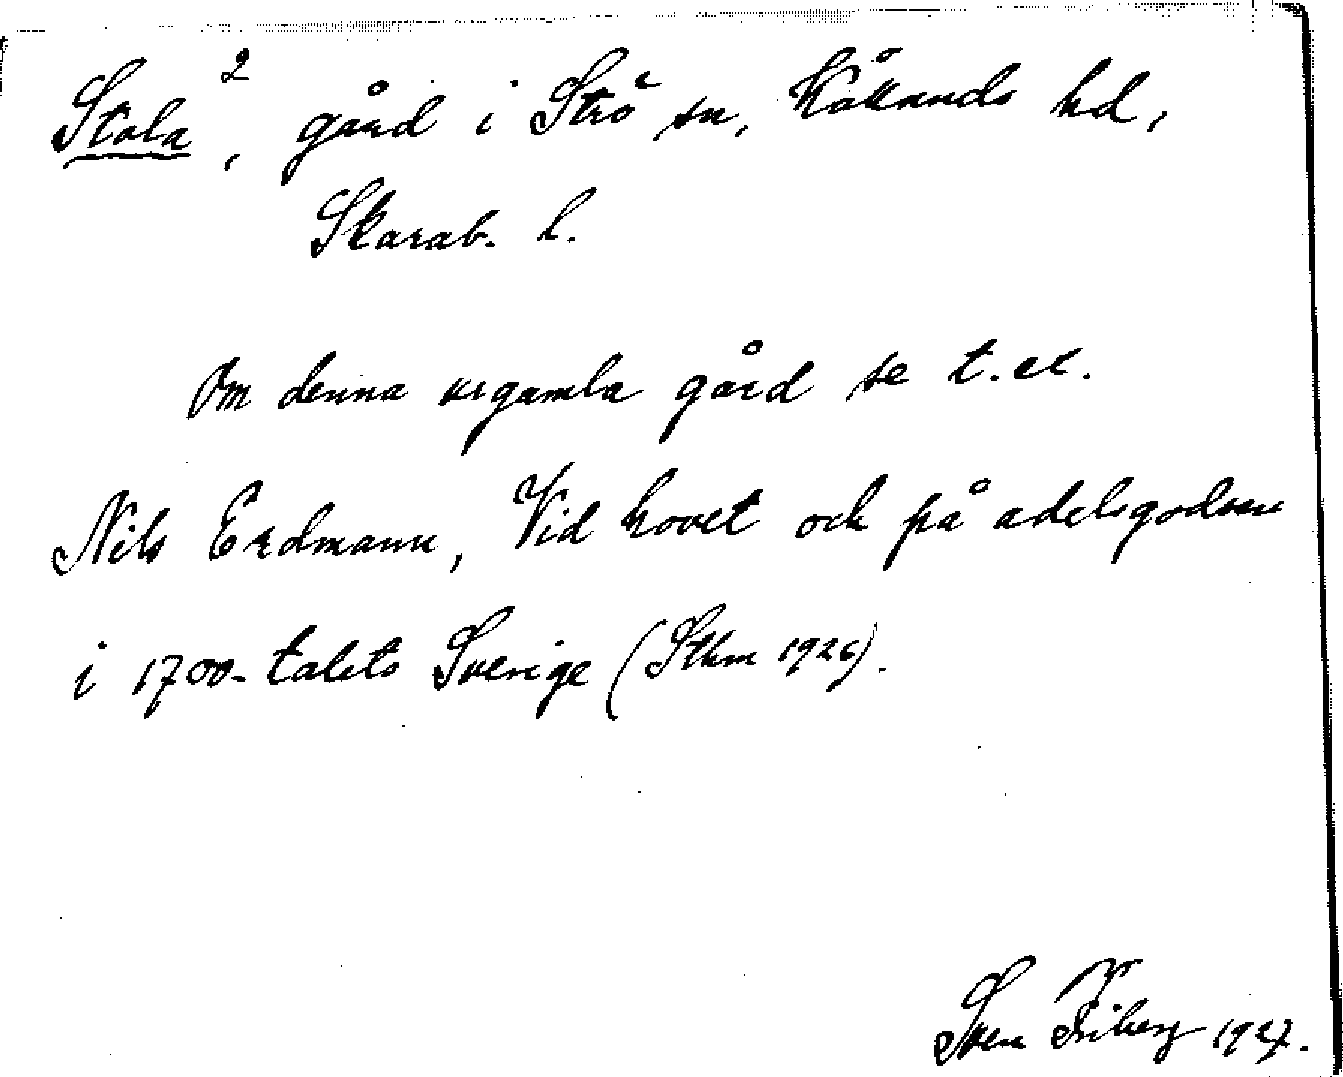 Stola², gård i Strö sn, Kållands hd,
Skarab. l.
Om denna urgamla gård se t.ex.
Nils Erdmann, Vid hovet och på adelsgodsen
i 1700-talets Sverige (Sthm 1926).
Sven Friberg 1927.